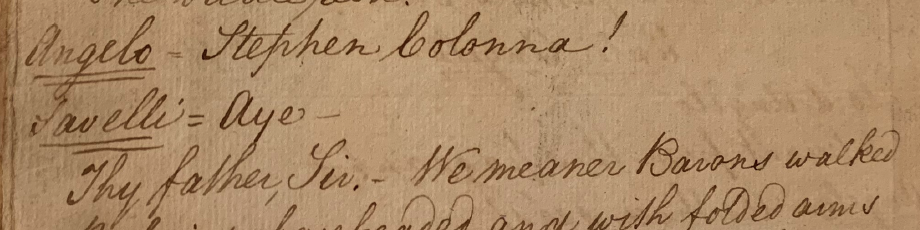 Angelo - Stephen Colonna!
Savelli = Aye -
Thy father, Sir. - We meaner Barons walked
bareheaded and with folded arms